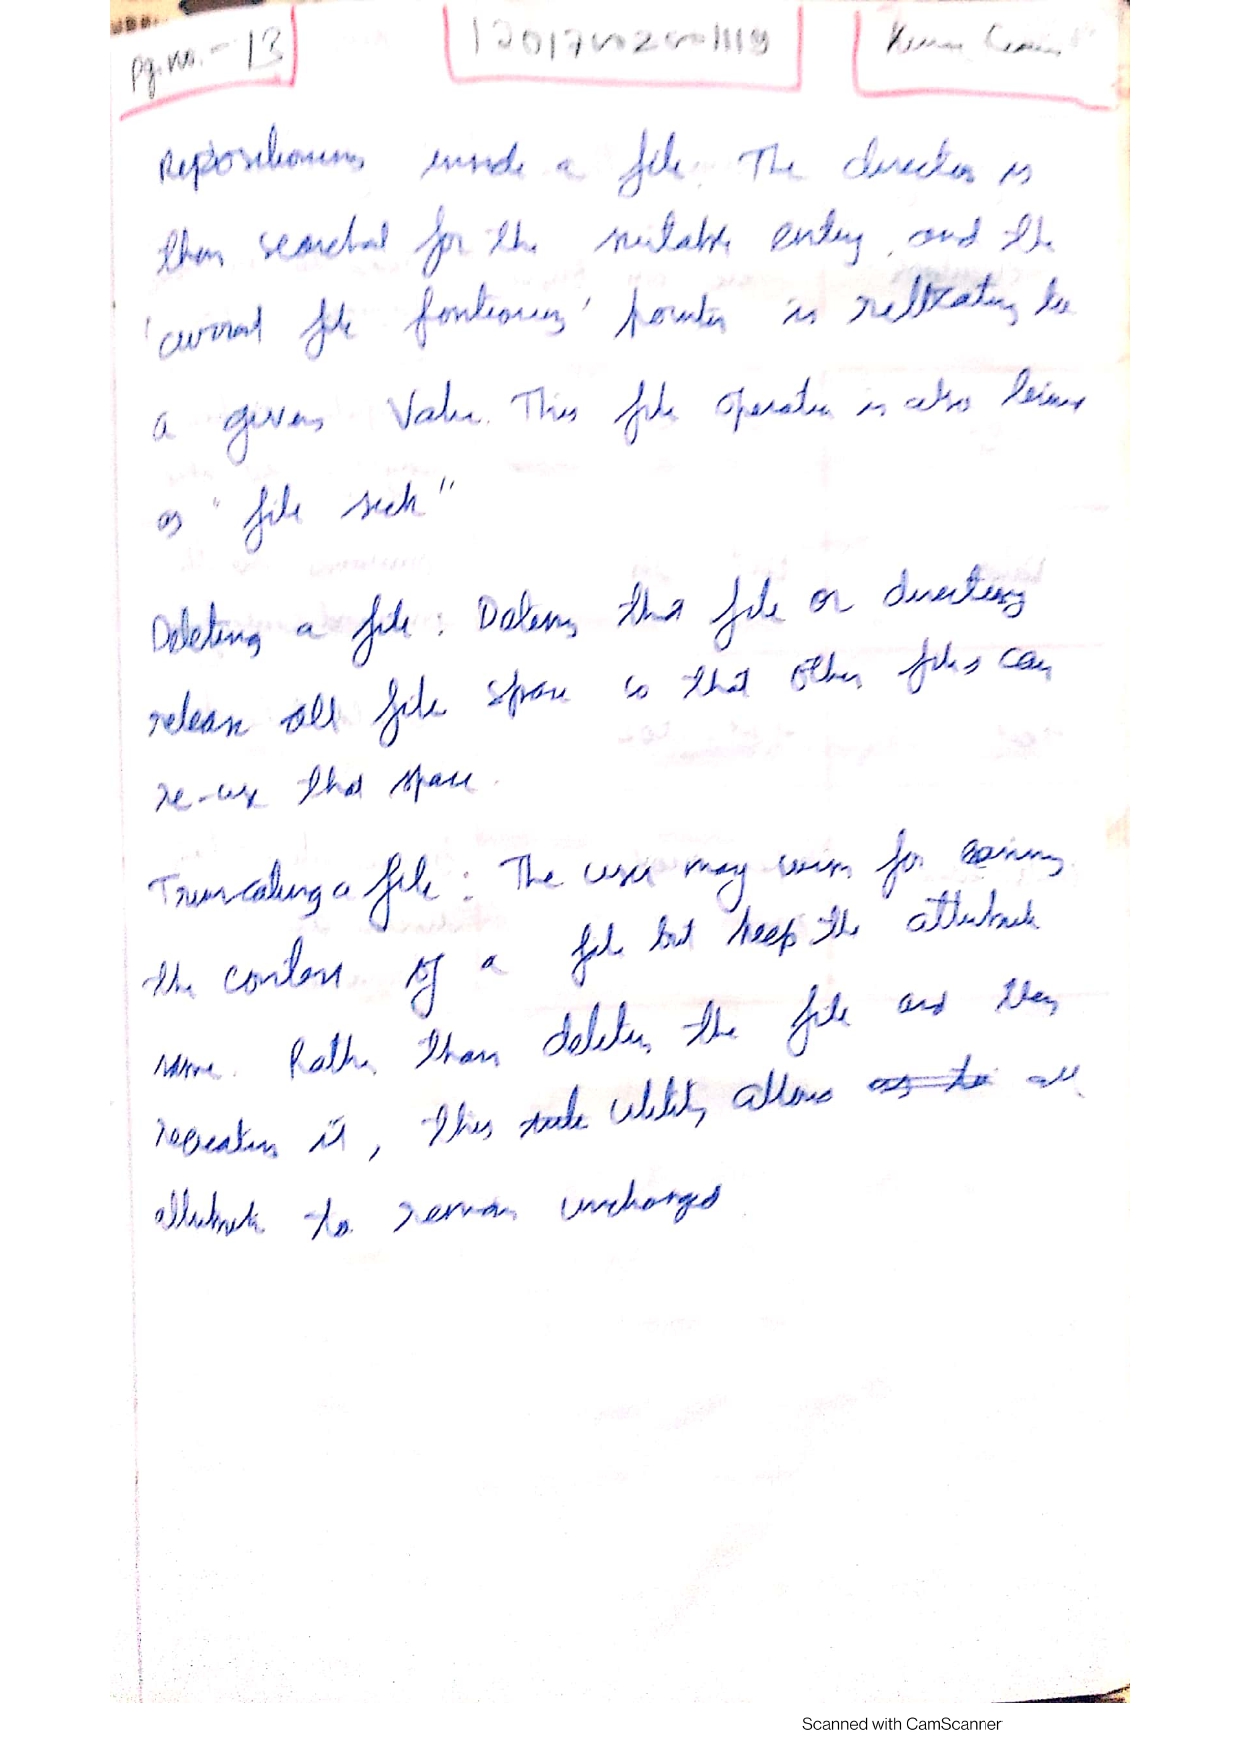 pg.no. - 13
Repositioning inside a file. The director is
then searched for the suitable entry, and the
'current file pointer is to
a given Value. This file operation is also
as "file seek"
Deleting a file: that file or directory
release all file space so that other files can
re-use that space.
Truncating a file: The user may for
the content of a file but keep the attribute
same. Rather than deleting the file and then
recreating it, this utility allows as to all
attribute to remain unchanged
Scanned with CamScanner